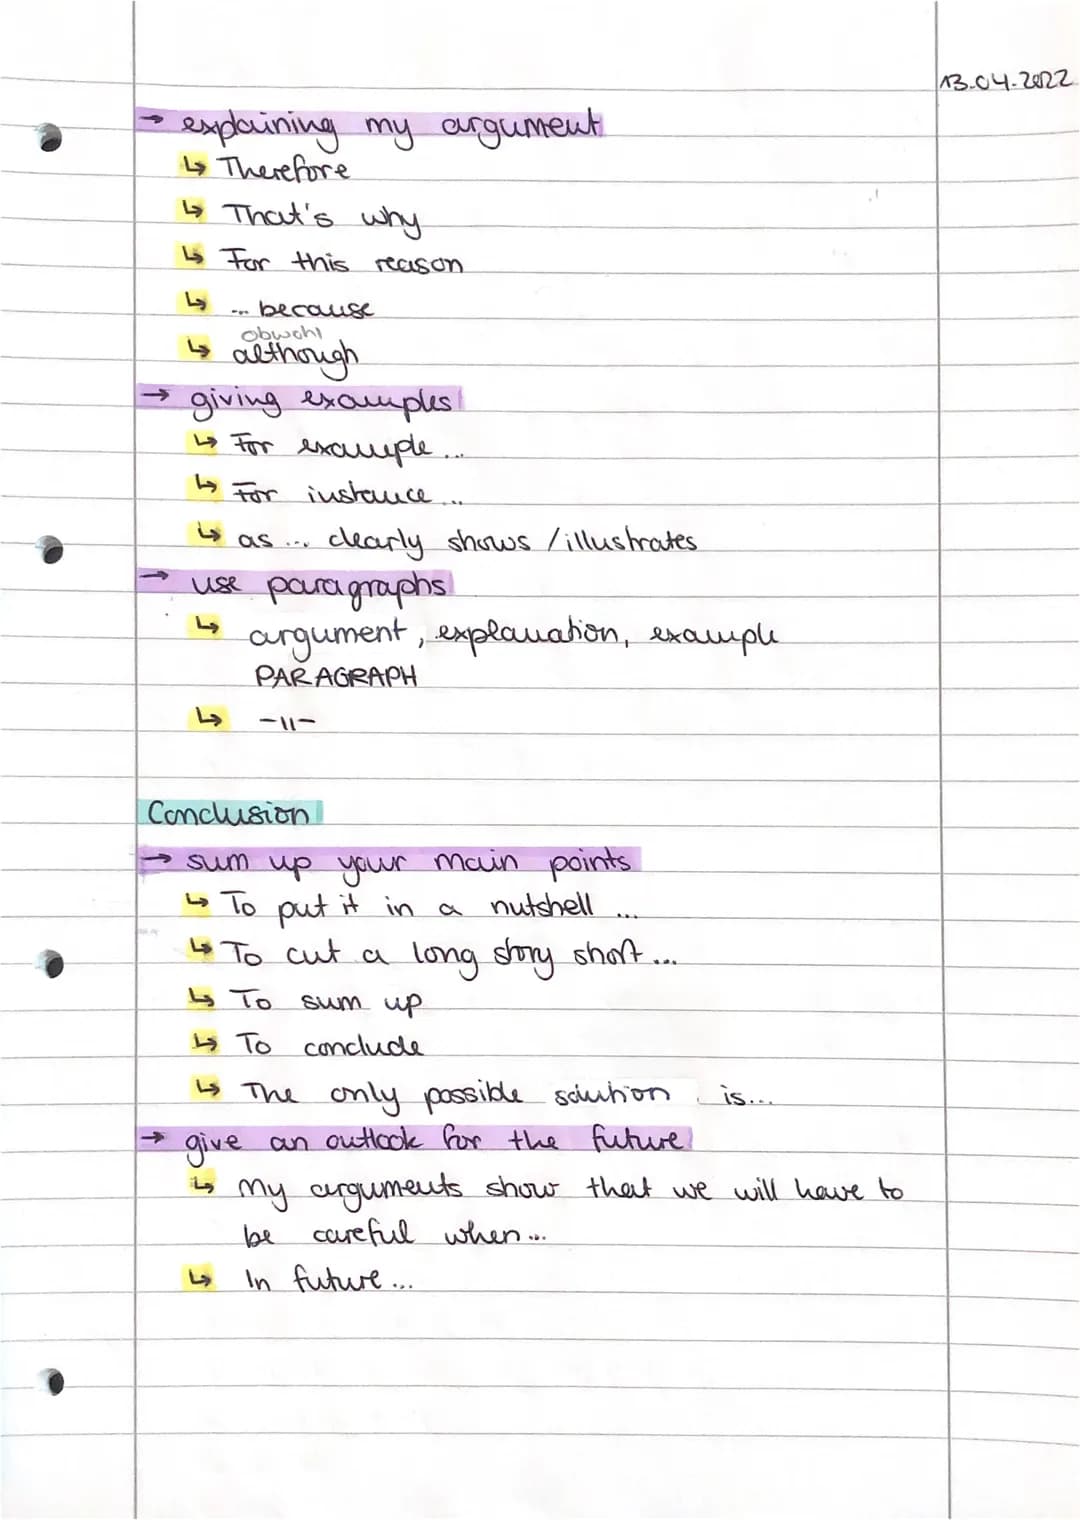 13.04.2022
→ explaining my argument
↳ Therefore
↳ That's why
↳ For this reason
↳ ... because
obwohl
↳ although
→ giving examples
↳ For example ...
↳ For instance ...
↳ as ... clearly shows / illustrates
→ use paragraphs
↳ argument, explanation, example
PARAGRAPH
↳ -11-
Conclusion
→ sum up your main points
↳ To put it in a nutshell ...
↳ To cut a long story short ...
↳ To sum up
↳ To conclude
↳ The only possible solution is...
→ give an outlook for the future
↳ My arguments show that we will have to
be careful when ...
↳ In future ...